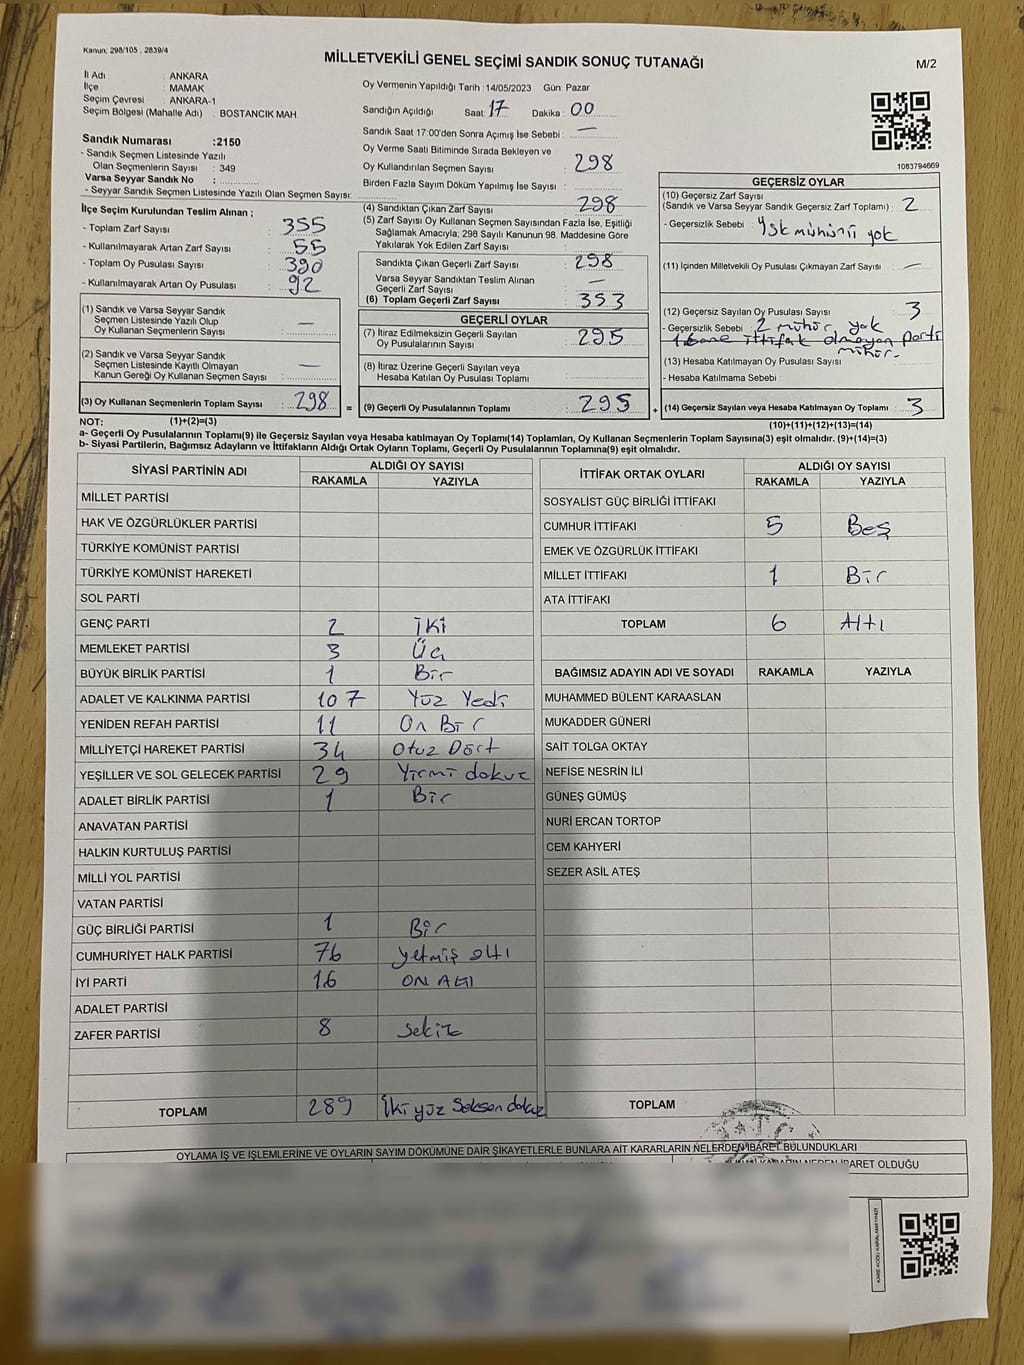 Kanun: 298/105 , 2839/4
MİLLETVEKİLİ GENEL SEÇİMİ SANDIK SONUÇ TUTANAĞI
M/2
İl Adı : ANKARA
İlçe : MAMAK
Seçim Çevresi : ANKARA-1
Seçim Bölgesi (Mahalle Adı) : BOSTANCIK MAH
Sandık Numarası :2150
- Sandık Seçmen Listesinde Yazılı
Olan Seçmenlerin Sayısı : 349
Varsa Seyyar Sandık No :
- Seyyar Sandık Seçmen Listesinde Yazılı Olan Seçmen Sayısı:
İlçe Seçim Kurulundan Teslim Alınan ;
- Toplam Zarf Sayısı : 355
- Kullanılmayarak Artan Zarf Sayısı : 55
- Toplam Oy Pusulası Sayısı : 390
- Kullanılmayarak Artan Oy Pusulası : 92
(1) Sandık ve Varsa Seyyar Sandık
Seçmen Listesinde Yazılı Olup
Oy Kullanan Seçmenlerin Sayısı : —
(2) Sandık ve Varsa Seyyar Sandık
Seçmen Listesinde Kayıtlı Olmayan
Kanun Gereği Oy Kullanan Seçmen Sayısı : —
(3) Oy Kullanan Seçmenlerin Toplam Sayısı : 298 =
Oy Vermenin Yapıldığı Tarih :14/05/2023 Gün: Pazar
Sandığın Açıldığı Saat: 17 Dakika : 00
Sandık Saat 17:00'den Sonra Açımış İse Sebebi : —
Oy Verme Saati Bitiminde Sırada Bekleyen ve
Oy Kullandırılan Seçmen Sayısı : 298
Birden Fazla Sayım Döküm Yapılmış İse Sayısı :
(4) Sandıktan Çıkan Zarf Sayısı : 298
(5) Zarf Sayısı Oy Kullanan Seçmen Sayısından Fazla İse, Eşitliği
Sağlamak Amacıyla; 298 Sayılı Kanunun 98. Maddesine Göre
Yakılarak Yok Edilen Zarf Sayısı :
Sandıkta Çıkan Geçerli Zarf Sayısı : 298
Varsa Seyyar Sandıktan Teslim Alınan
Geçerli Zarf Sayısı : —
(6) Toplam Geçerli Zarf Sayısı : 353
GEÇERLİ OYLAR
(7) İtiraz Edilmeksizin Geçerli Sayılan
Oy Pusulalarının Sayısı : 295
(8) İtiraz Üzerine Geçerli Sayılan veya
Hesaba Katılan Oy Pusulası Toplamı :
(9) Geçerli Oy Pusulalarının Toplamı : 295 +
1083794669
GEÇERSİZ OYLAR
(10) Geçersiz Zarf Sayısı
(Sandık ve Varsa Seyyar Sandık Geçersiz Zarf Toplamı) : 2
- Geçersizlik Sebebi : Ysk mühürü yok
(11) İçinden Milletvekili Oy Pusulası Çıkmayan Zarf Sayısı : —
(12) Geçersiz Sayılan Oy Pusulası Sayısı : 3
- Geçersizlik Sebebi : 2 mühür yok
1 tane ittifak olmayan parti
mühür.
(13) Hesaba Katılmayan Oy Pusulası Sayısı :
- Hesaba Katılmama Sebebi :
(14) Geçersiz Sayılan veya Hesaba Katılmayan Oy Toplamı : 3
NOT: (1)+(2)=(3)
(10)+(11)+(12)+(13)=(14)
a- Geçerli Oy Pusulalarının Toplamı(9) ile Geçersiz Sayılan veya Hesaba katılmayan Oy Toplamı(14) Toplamları, Oy Kullanan Seçmenlerin Toplam Sayısına(3) eşit olmalıdır. (9)+(14)=(3)
b- Siyasi Partilerin, Bağımsız Adayların ve İttifakların Aldığı Ortak Oyların Toplamı, Geçerli Oy Pusulalarının Toplamına(9) eşit olmalıdır.
SİYASİ PARTİNİN ADI ALDIĞI OY SAYISI
RAKAMLA YAZIYLA
MİLLET PARTİSİ
HAK VE ÖZGÜRLÜKLER PARTİSİ
TÜRKİYE KOMÜNİST PARTİSİ
TÜRKİYE KOMÜNİST HAREKETİ
SOL PARTİ
GENÇ PARTİ 2 İki
MEMLEKET PARTİSİ 3 Üç
BÜYÜK BİRLİK PARTİSİ 1 Bir
ADALET VE KALKINMA PARTİSİ 107 Yüz Yedi
YENİDEN REFAH PARTİSİ 11 On Bir
MİLLİYETÇİ HAREKET PARTİSİ 34 Otuz Dört
YEŞİLLER VE SOL GELECEK PARTİSİ 29 Yirmi dokuz
ADALET BİRLİK PARTİSİ 1 Bir
ANAVATAN PARTİSİ
HALKIN KURTULUŞ PARTİSİ
MİLLİ YOL PARTİSİ
VATAN PARTİSİ
GÜÇ BİRLİĞİ PARTİSİ 1 Bir
CUMHURİYET HALK PARTİSİ 76 Yetmiş altı
İYİ PARTİ 16 ON Altı
ADALET PARTİSİ
ZAFER PARTİSİ 8 Sekiz
TOPLAM 289 İki yüz Seksen dokuz
İTTİFAK ORTAK OYLARI ALDIĞI OY SAYISI
RAKAMLA YAZIYLA
SOSYALİST GÜÇ BİRLİĞİ İTTİFAKI
CUMHUR İTTİFAKI 5 Beş
EMEK VE ÖZGÜRLÜK İTTİFAKI
MİLLET İTTİFAKI 1 Bir
ATA İTTİFAKI
TOPLAM 6 Altı
BAĞIMSIZ ADAYIN ADI VE SOYADI RAKAMLA YAZIYLA
MUHAMMED BÜLENT KARAASLAN
MUKADDER GÜNERİ
SAİT TOLGA OKTAY
NEFİSE NESRİN İLİ
GÜNEŞ GÜMÜŞ
NURİ ERCAN TORTOP
CEM KAHYERİ
SEZER ASİL ATEŞ
TOPLAM
OYLAMA İŞ VE İŞLEMLERİNE VE OYLARIN SAYIM DÖKÜMÜNE DAİR ŞİKAYETLERLE BUNLARA AİT KARARLARIN NELERDEN İBARET BULUNDUKLARI
KARARIN NEDEN İBARET OLDUĞU